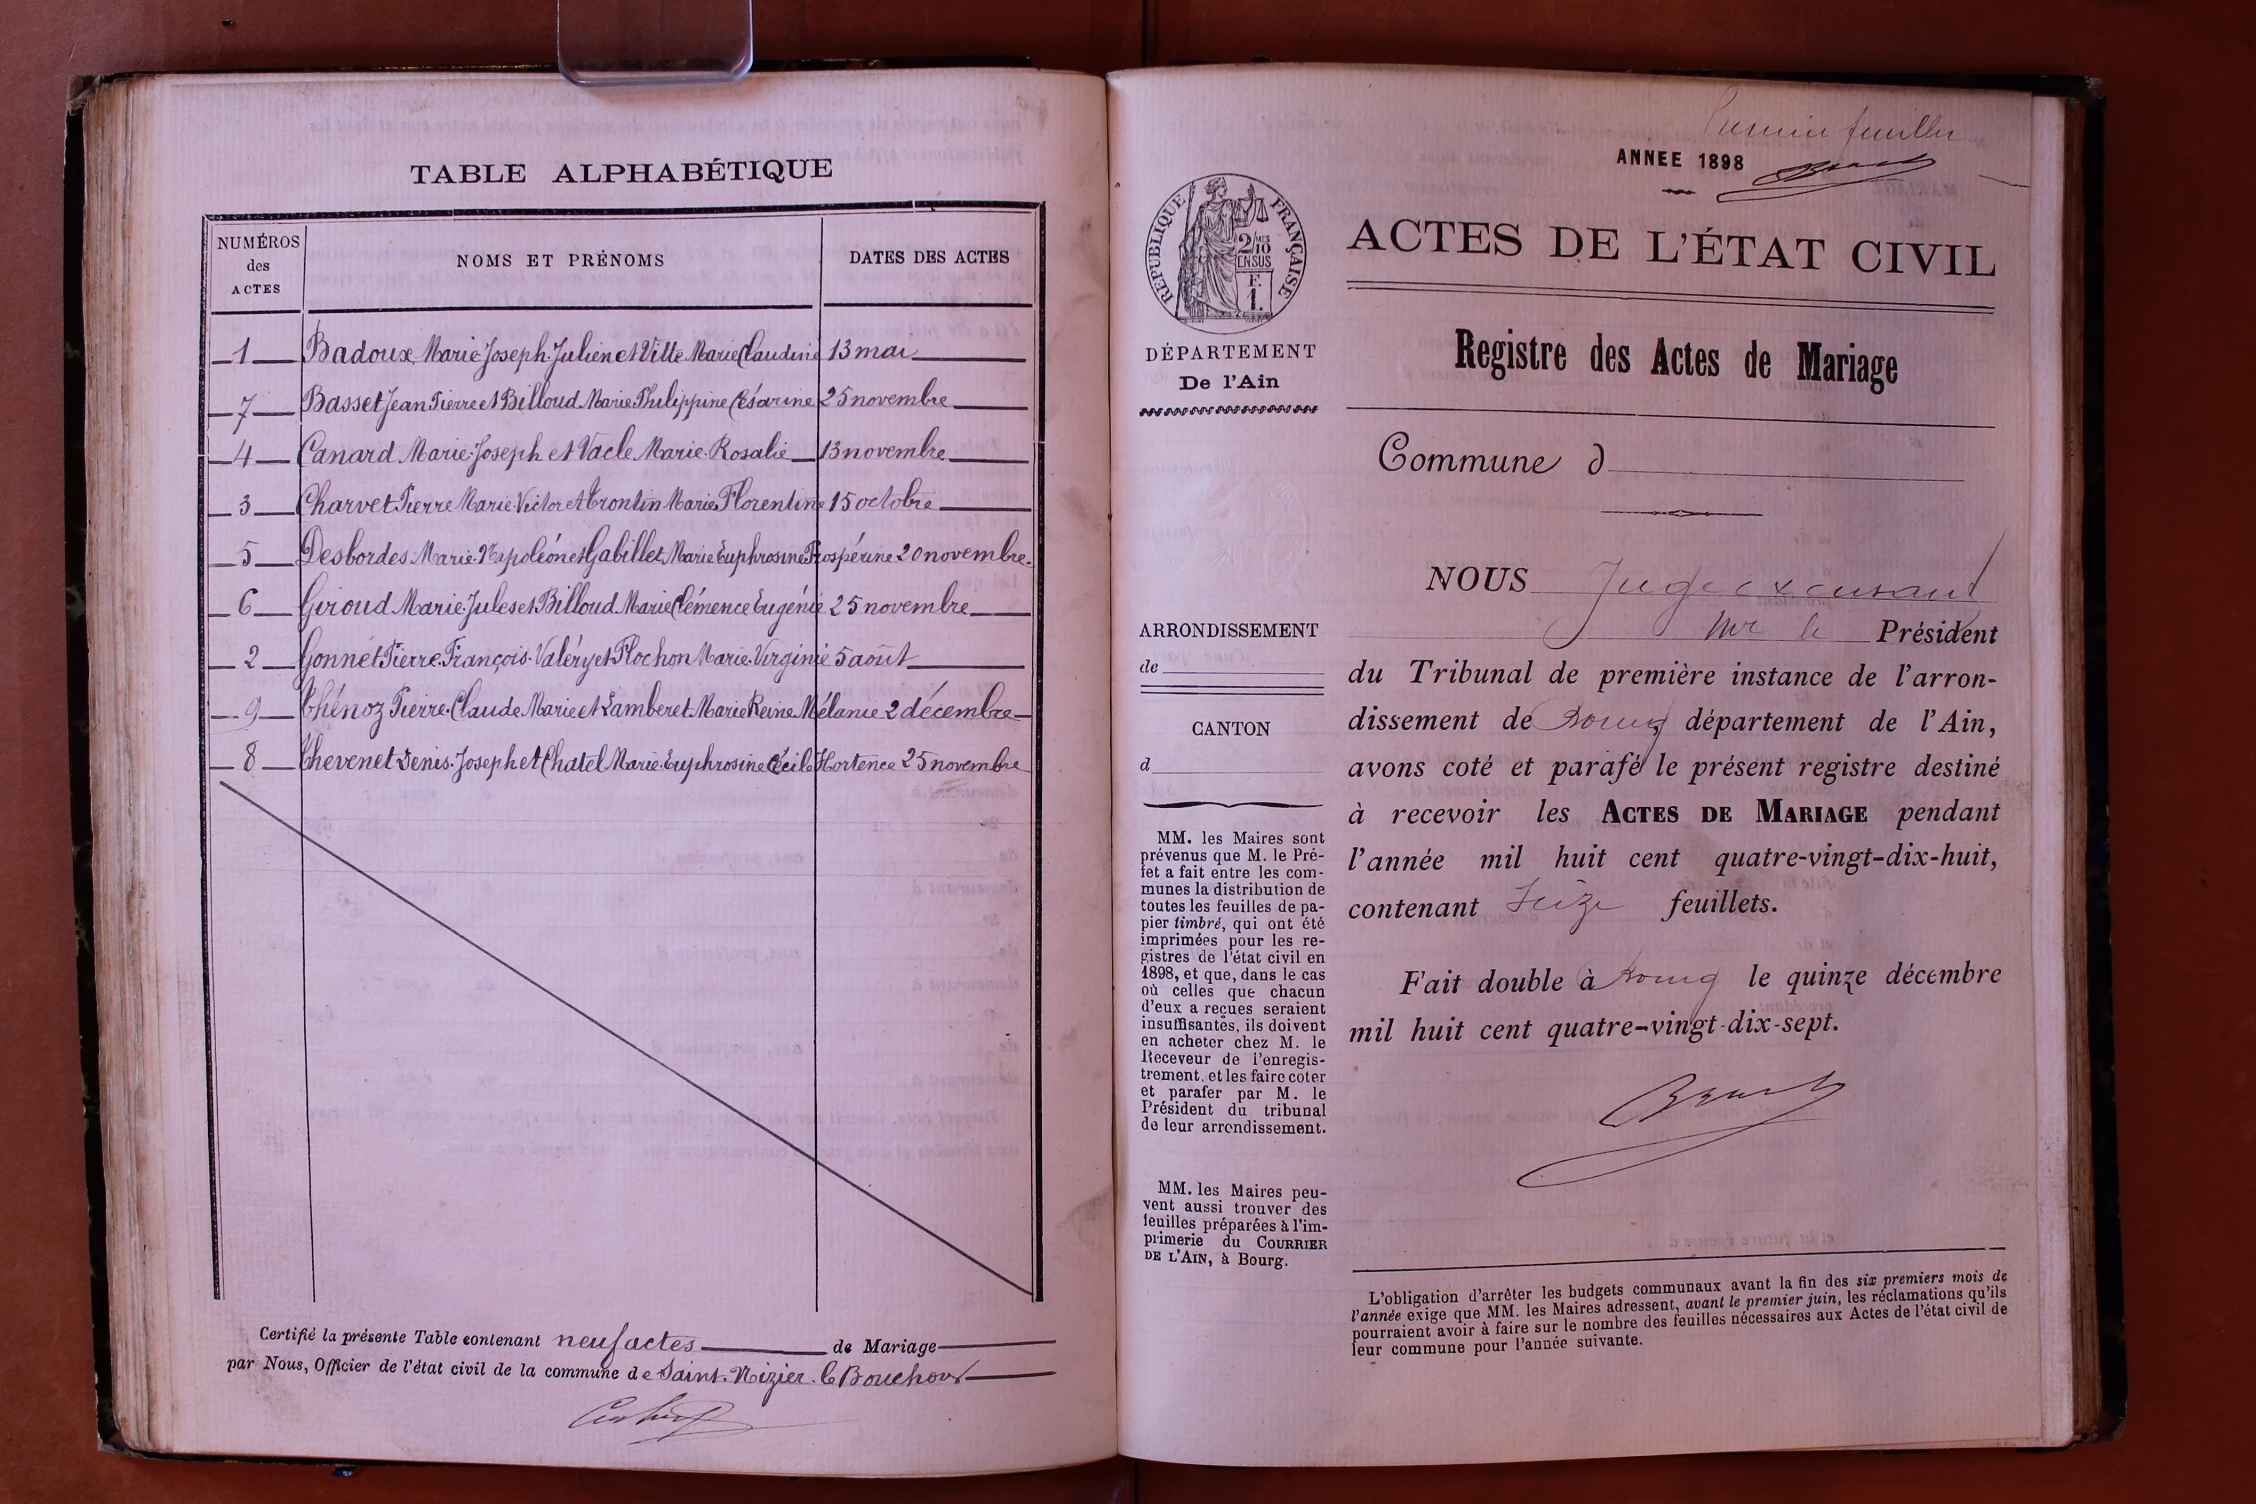 TABLE ALPHABÉTIQUE
NUMÉROS des ACTES NOMS ET PRÉNOMS DATES DES ACTES
1 Badoux Marie Joseph Julien et Ville Marie Claudine 13 mai
7 Basset Jean Pierre et Billoud Marie Philippine Césarine 25 novembre
4 Canard Marie Joseph et Vacle Marie Rosalie 13 novembre
3 Charvet Pierre Marie Victor et Trontin Marie Florentine 15 octobre
5 Desbordes Marie Napoléon et Gabillet Marie Euphrosine Prospérine 20 novembre
6 Giroud Marie Jules et Billoud Marie Clémence Eugénie 25 novembre
2 Gonnet Pierre François Valéry et Plochon Marie Virginie 5 août
9 Thénoz Pierre Claude Marie et Lamberet Marie Reine Mélanie 2 décembre
8 Thevenet Denis Joseph et Chatel Marie Euphrosine Cécile Hortence 25 novembre
Certifié la présente Table contenant neuf actes de Mariage
par Nous, Officier de l'état civil de la commune de Saint-Nizier-le Bouchoux
Premier feuillet
ANNEE 1898
RÉPUBLIQUE FRANÇAISE
2/MES
10
EN SUS
F.
1.
DÉPARTEMENT
De l'Ain
ARRONDISSEMENT
de
CANTON
d
MM. les Maires sont
prévenus que M. le Pré-
fet a fait entre les com-
munes la distribution de
toutes les feuilles de pa-
pier timbré, qui ont été
imprimées pour les re-
gistres de l'état civil en
1898, et que, dans le cas
où celles que chacun
d'eux a reçues seraient
insuffisantes, ils doivent
en acheter chez M. le
Receveur de l'enregis-
trement, et les faire coter
et parafer par M. le
Président du tribunal
de leur arrondissement.
MM. les Maires peu-
vent aussi trouver des
feuilles préparées à l'im-
primerie du COURRIER
DE L'AIN, à Bourg.
ACTES DE L'ÉTAT CIVIL
Registre des Actes de Mariage
Commune d
NOUS Juge excusant
Mr le Président
du Tribunal de première instance de l'arron-
dissement de Bourg département de l'Ain,
avons coté et parafé le présent registre destiné
à recevoir les ACTES DE MARIAGE pendant
l'année mil huit cent quatre-vingt-dix-huit,
contenant Seize feuillets.
Fait double à Bourg le quinze décembre
mil huit cent quatre-vingt-dix-sept.
L'obligation d'arrêter les budgets communaux avant la fin des six premiers mois de
l'année exige que MM. les Maires adressent, avant le premier juin, les réclamations qu'ils
pourraient avoir à faire sur le nombre des feuilles nécessaires aux Actes de l'état civil de
leur commune pour l'année suivante.